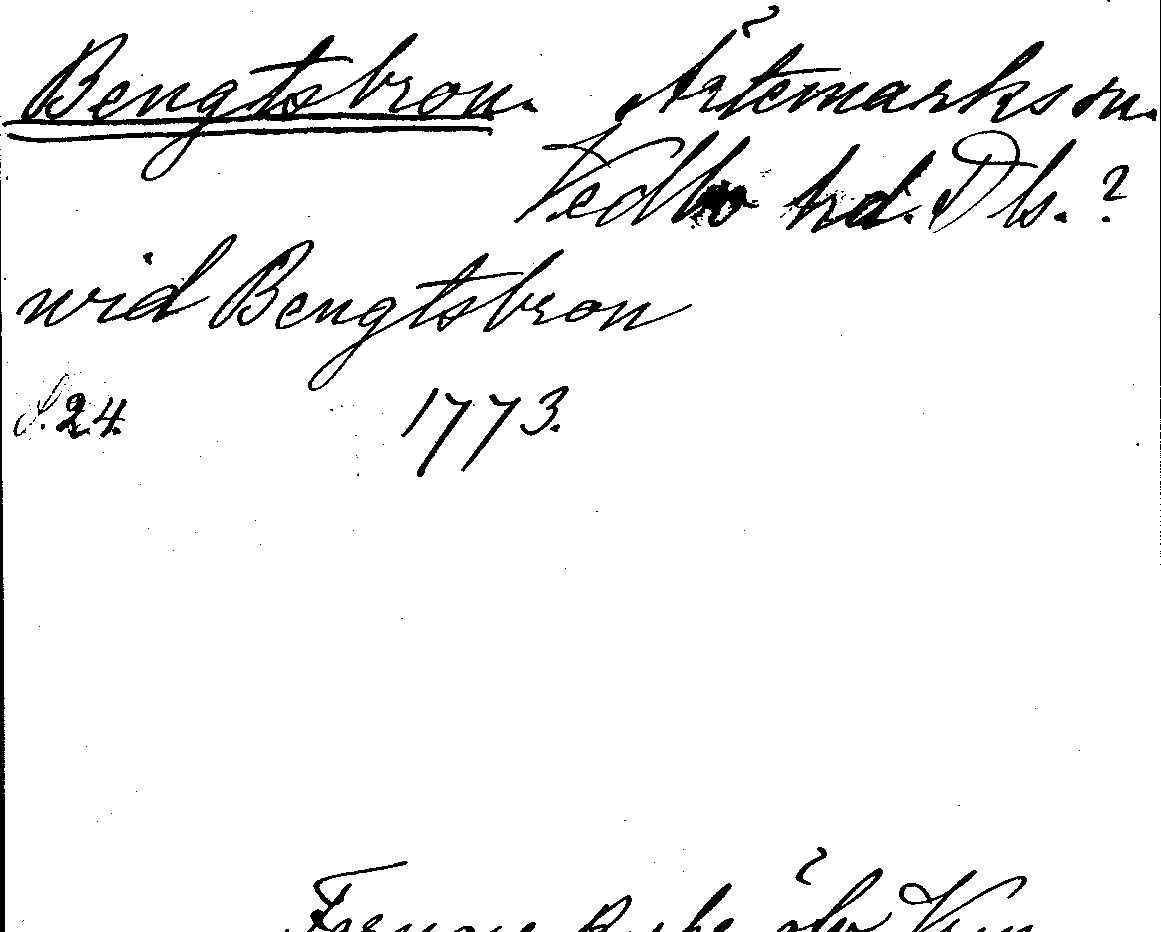 Bengtsbron. Ärtemarks sn.
Vedbo hd. Dls. ?
wid Bengtsbron
S. 24. 1773.